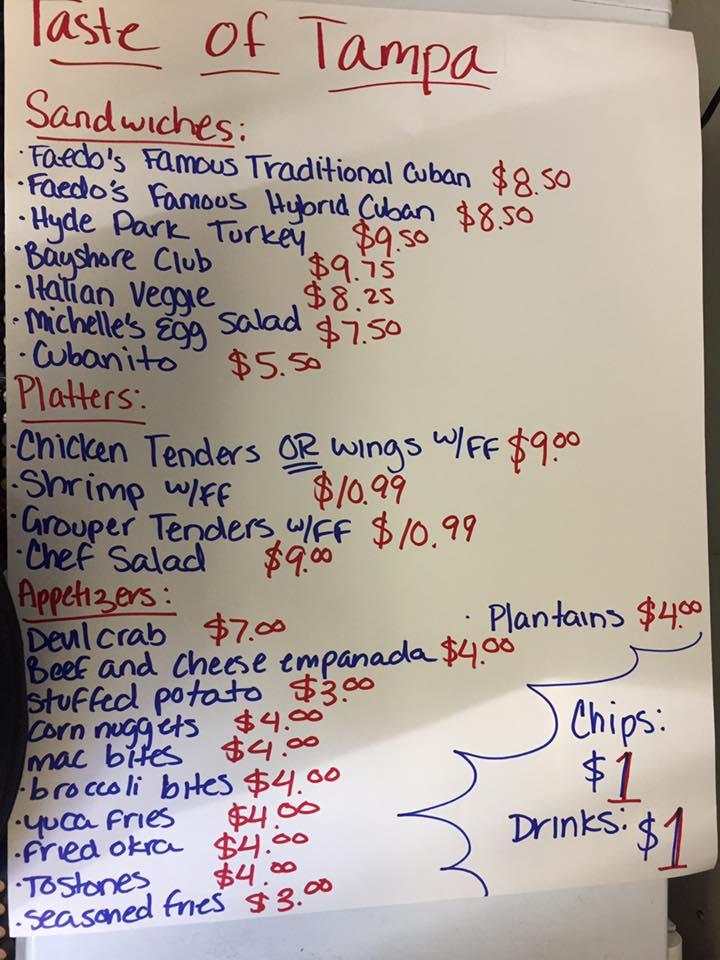 Taste of Tampa
Sandwiches:
·Faedo's Famous Traditional Cuban $8.50
·Faedo's Famous Hybrid Cuban $8.50
·Hyde Park Turkey $9.50
·Bayshore Club $9.75
·Italian Veggie $8.25
·Michelle's Egg Salad $7.50
·Cubanito $5.50
Platters:
·Chicken Tenders OR wings w/FF $9.00
·Shrimp w/FF $10.99
·Grouper Tenders w/FF $10.99
·Chef Salad $9.00
Appetizers:
Devil crab $7.00
Beef and cheese empanada $4.00
stuffed potato $3.00
corn nuggets $4.00
mac bites $4.00
·broccoli bites $4.00
·yuca fries $4.00
·fried okra $4.00
·Tostones $4.00
·seasoned fries $3.00
· Plantains $4.00
Chips:
$1
Drinks: $1